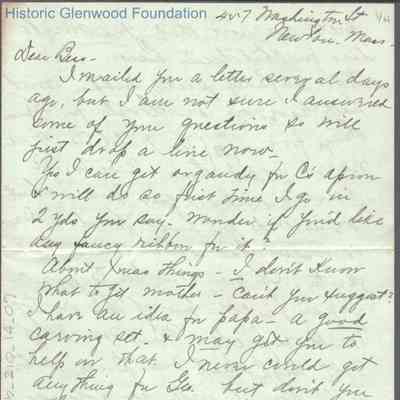 Historic Glenwood Foundation
457 Washington St
Newton, Mass -
1/11
Dear Bess -
I mailed you a letter several days
ago, but I am not sure I answered
some of your questions so will
just drop a line now -
Yes I can get organdy for C's apron
& will do so first time I go in
2 yds you say - Wonder if you'd like
any fancy ribbon for it?
About Xmas things - I don't know
what to get mother - can't you suggest?
I have an idea for papa - a good
carving set - & may get you to
help on that. I never could get
anything for Geo. but don't you
210.14.07